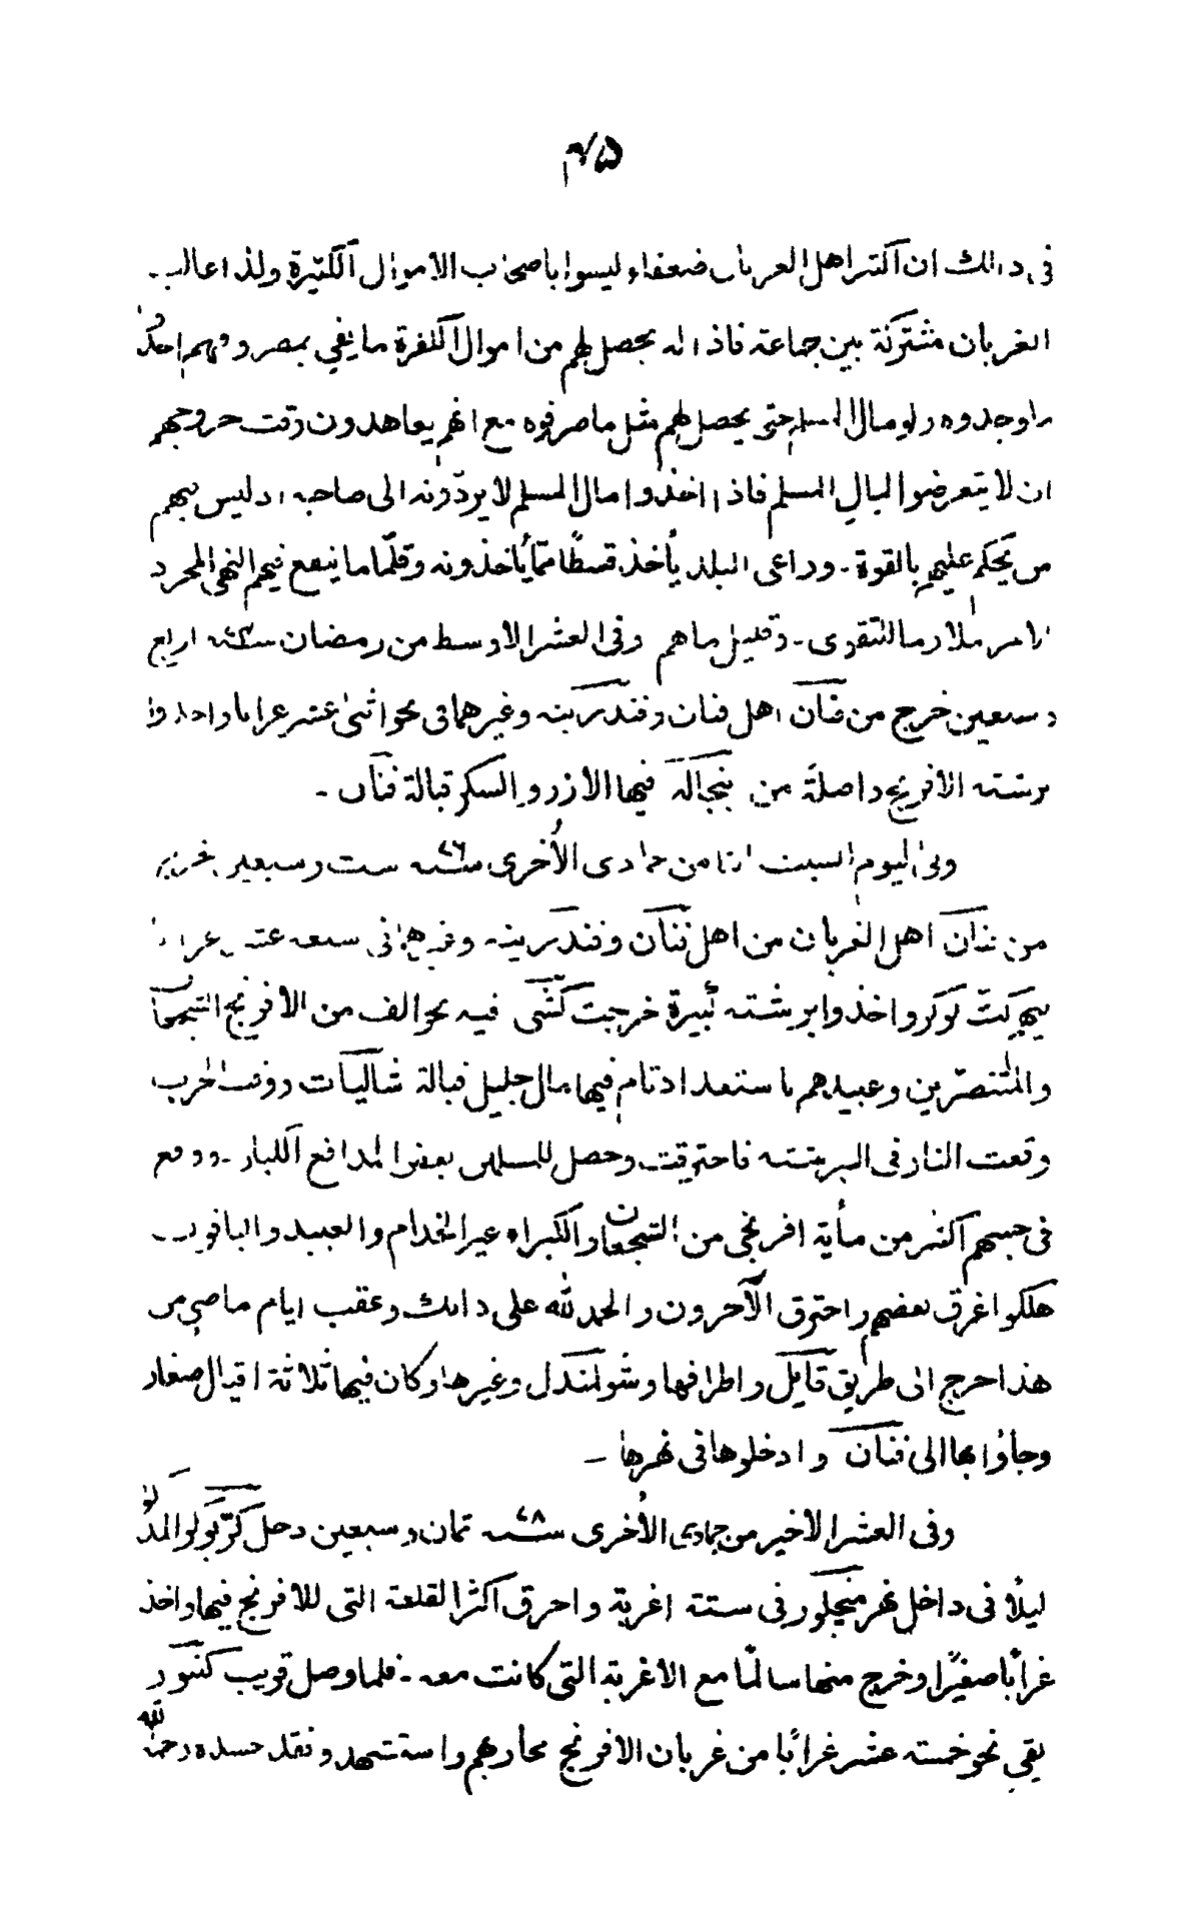 ٧٥
فى ذالك ان اكثر اهل الغربان ضعفاء ليسوا باصحاب الاموال الكثيرة ولذا غالب
الغربان مشتركة بين جماعة فاذا لم يحصل لهم من اموال الكفرة ما يفي بمصروفهم اخذوا
ما وجدوه ولو مال المسلم حتى يحصل لهم مثل ما صرفوه مع انهم يعاهدون وقت خروجهم
ان لا يتعرضوا لمال المسلم فاذا اخذوا مال المسلم لا يردّونه الى صاحبه اذ ليس بهم
من يحكم عليهم بالقوة - وراعى البلد يأخذ قسطًا ممّا يأخذونه وقلّما ما ينفع فيهم النهى المجرد
الامر ملازما لتقوى - وقليل ما هم وفى العشر الاوسط من رمضان سنة اربع
وسبعين خرج من فنان اهل فنان وفندرينه وغيرهما فى نحو اثنى عشر غرابا واخذوا
برشته الافرنج واصلة من بنجالة فيها الأرز والسكر قبالة فنان -
وفى اليوم السبت الثامن من جمادى الأخرى سنة ٧٦ ست وسبعين
من فنان اهل الغربان من اهل فنان وفندرينه وغيرهما فى سبعة عشر غرابا
واخذوا برشته كبيرة خرجت كشى فيه نحو الف من الافرنج الشجعان
والمتنصّرين وعبيدهم باستعداد تام فيها مال جليل قبالة شاليات ووقت الحرب
وقعت النار فى البرشته فاحترقت وحصل للمسلمين بعض المدافع الكبار - ووقع
فى حبسهم اكثر من مأية افرنجى من الشجعان والكبراء غير الخدام والعبيد والباقون
هلكوا غرق بعضهم واحترق الآخرون والحمد لله على ذالك وعقب ايام ماضى من
هذا خرج الى طريق قايل واطرافها وشولمندل وغيرها وكان فيها ثلاثة افيال صغار
وجاؤا بها الى فنان وادخلوها فى نهرها -
وفى العشر الاخير من جمادى الأخرى سنة ٧٨ ثمان وسبعين دخل كرتبوكر المذكور
ليلًا فى داخل نهر منجلور فى ستة اغربة واحرق اكثر القلعة التى للافرنج فيها واخذ
غرابًا صغيرًا وخرج منها سالمًا مع الاغربة التى كانت معه - فلما وصل قريب كننور
لقى نحو خمسة عشر غرابًا من غربان الافرنج فحاربهم واستشهد وفقد جسده رحمه الله